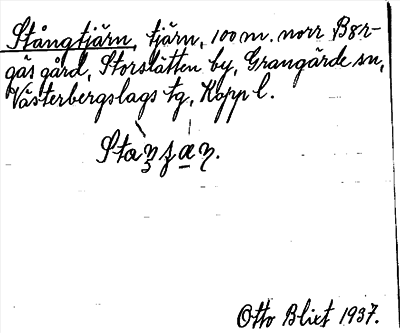 Stångtjärn, tjärn, 100 m. norr Bør-
gås gård, Storslätten by, Grangärde sn,
Västerbergslags tg, Kopp l.
Otto Blixt 1937.